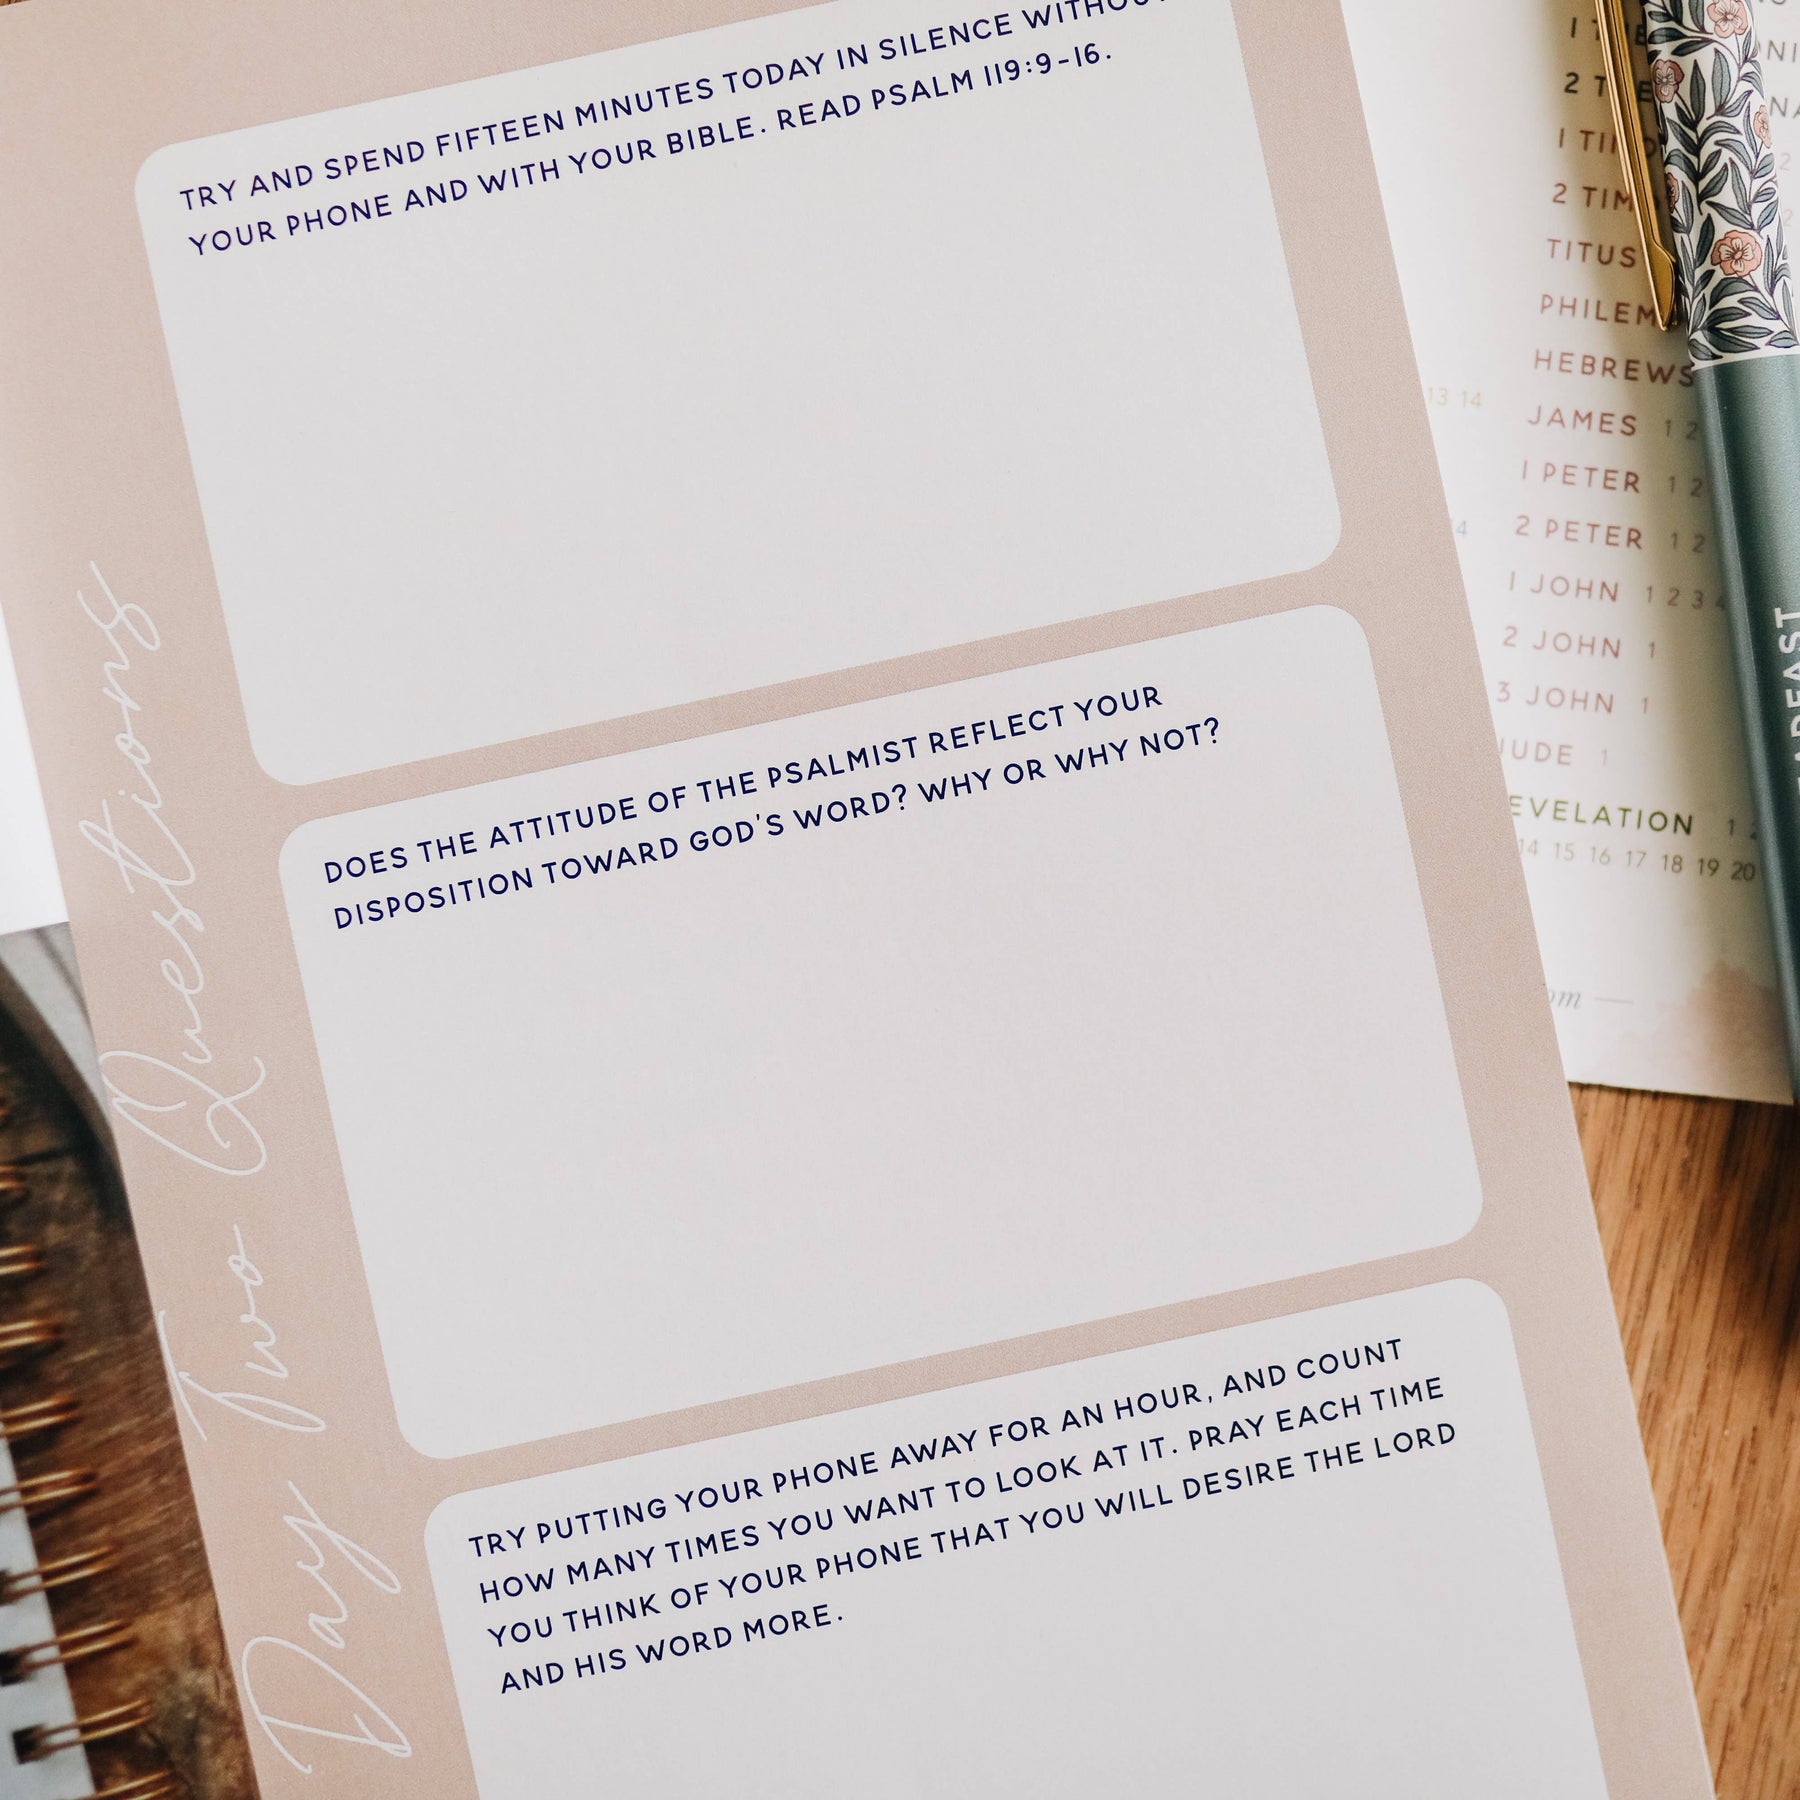 TRY AND SPEND FIFTEEN MINUTES TODAY IN SILENCE
YOUR PHONE AND WITH YOUR BIBLE. READ PSALM 119:9-16.
DOES THE ATTITUDE OF THE PSALMIST REFLECT YOUR
DISPOSITION TOWARD GOD'S WORD? WHY OR WHY NOT?
TRY PUTTING YOUR PHONE AWAY FOR AN HOUR, AND COUNT
HOW MANY TIMES YOU WANT TO LOOK AT IT. PRAY EACH TIME
YOU THINK OF YOUR PHONE THAT YOU WILL DESIRE THE LORD
AND HIS WORD MORE.
Day Two Questions
2 TIM
TITUS
PHILEM
HEBREWS
13 14
JAMES 1 2
1 PETER 1 2
2 PETER 1 2
1 JOHN 1 2 3 4
2 JOHN 1
3 JOHN 1
UDE 1
EVELATION 1 2
14 15 16 17 18 19 20